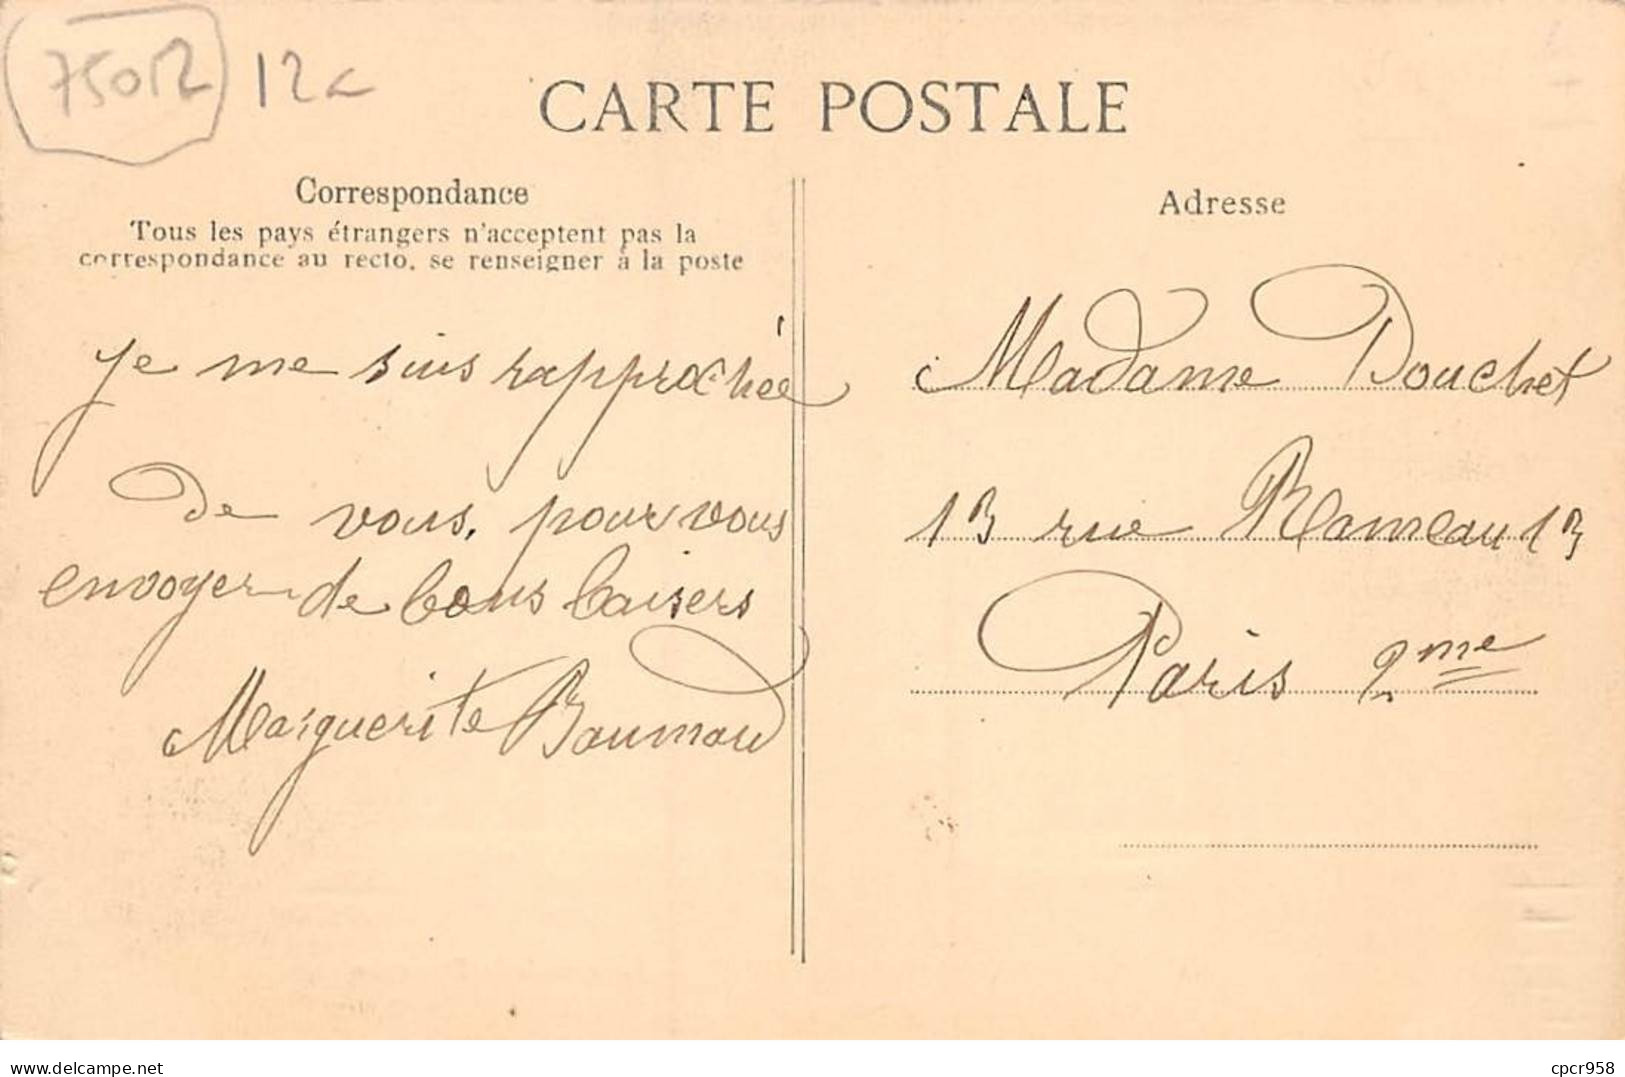 75012 12e
CARTE POSTALE
Correspondance
Tous les pays étrangers n'acceptent pas la
correspondance au recto, se renseigner à la poste
Je me suis rapprochée
de vous, pour vous
envoyer de bons baisers
Marguerite
Adresse
Madame Douchet
13 rue Rameau 13
Paris 2me
www.delcampe.net
cpcr958